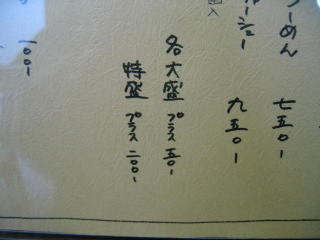 らーめん 七五〇ー
チャーシュー 九五〇ー
各大盛 プラス 五〇ー
特盛 プラス 二〇〇ー
一〇〇ー